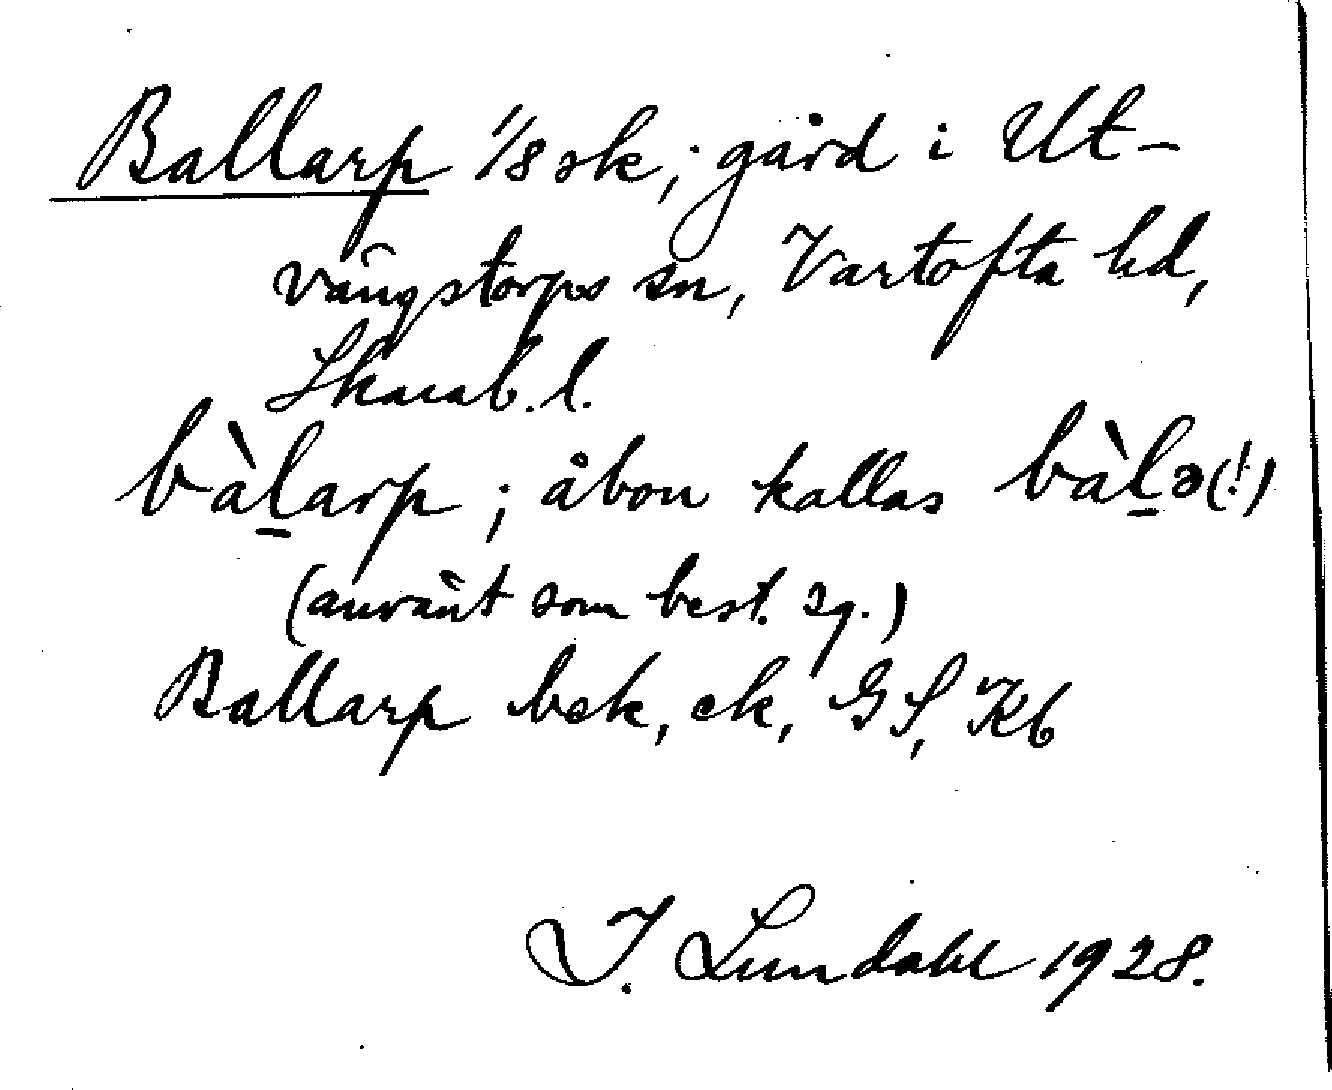 Ballarp 1/8 sk, gård i Ut-
vängstorps sn, Vartofta hd,
Skarab. l.
bàḻarp ; åbon kallas bàḻə (!)
(använt som best. sg.)
Ballarp bek, ek, GS, Kb
I. Lundahl 1928.